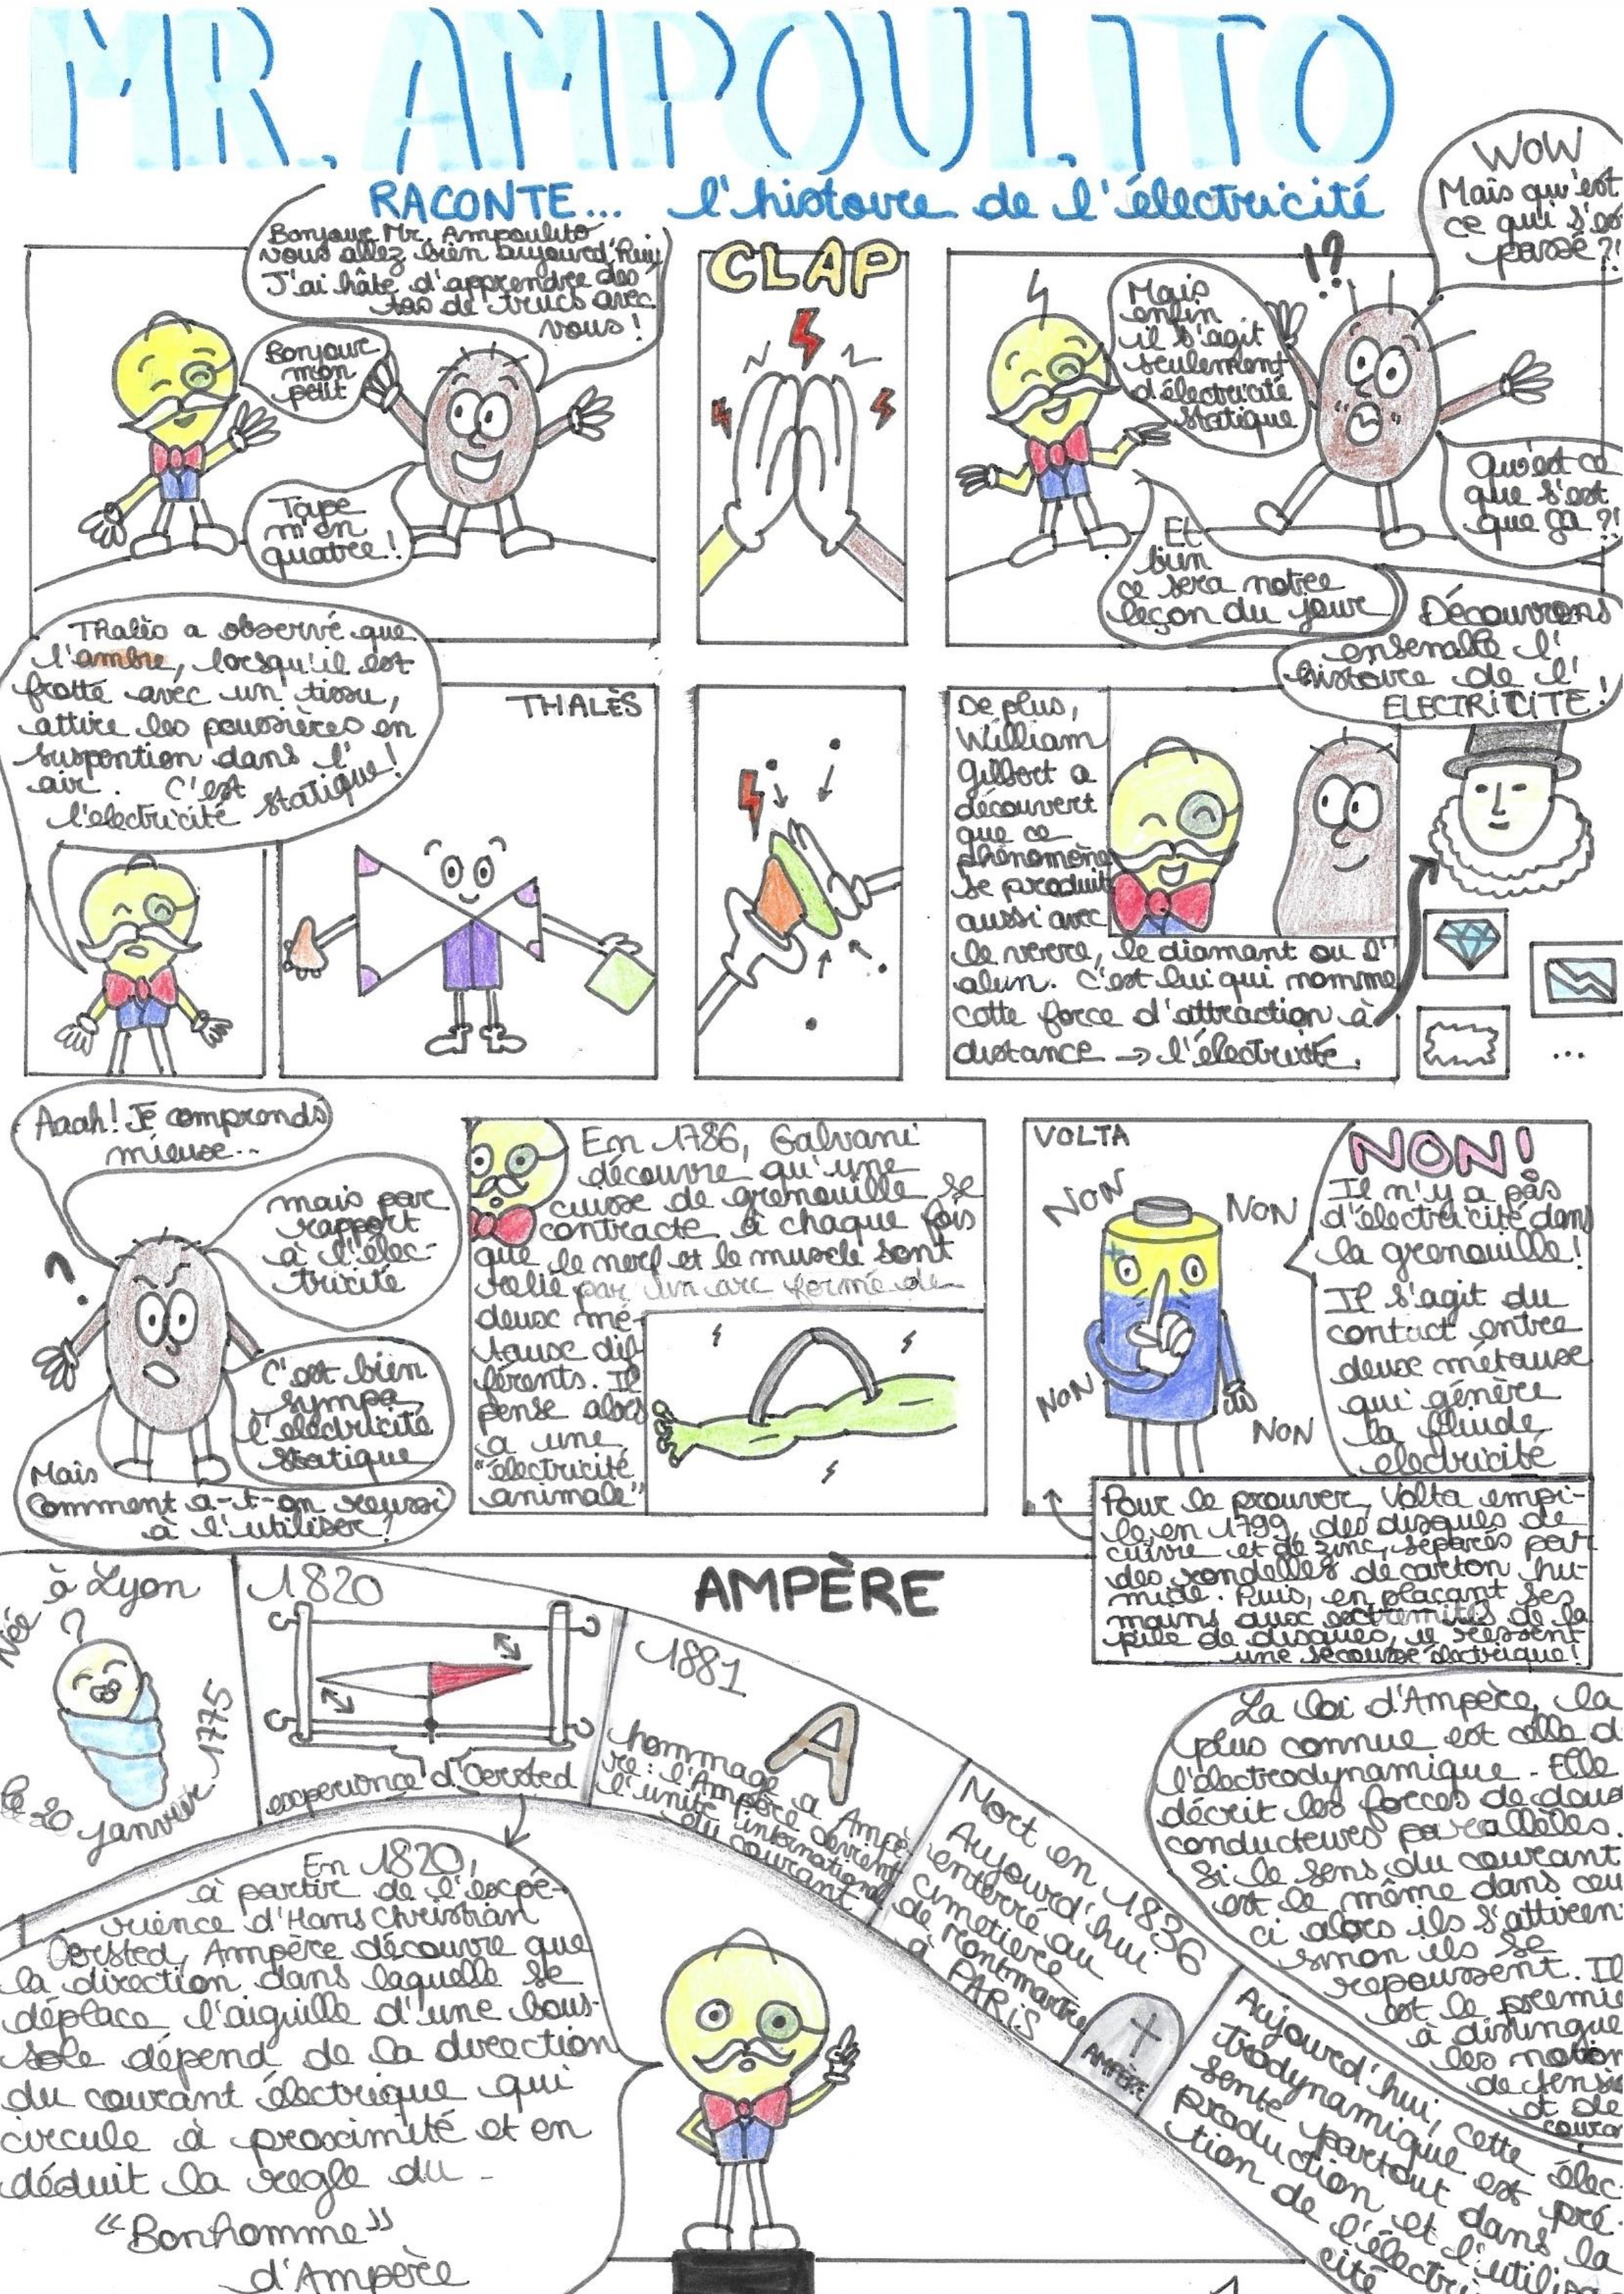 MR. AMPOULITO
RACONTE... l'histoire de l'électricité
Bonjour Mr. Ampoulito
vous allez bien aujourd'hui
J'ai hâte d'apprendre des
tas de trucs avec
vous !
Bonjour
mon
petit
Tape
m'en
quatre !
CLAP
WOW
Mais qu'est
ce qui s'es
passé ?!
!?
Mais
enfin
il s'agit
seulement
d'électricité
statique
Qu'est ce
que s'est
que ça ?!
Et
bien
ce sera notre
leçon du jour
Découvrons
ensemble l'
histoire de l'
ELECTRICITÉ !
Thalès a observé que
l'ambre, lorsqu'il est
frotté avec un tissu,
attire les poussières en
suspention dans l'
air. C'est
l'electricité statique !
THALÈS
De plus,
William
Gilbert a
découvert
que ce
phénomène
se produit
aussi avec
le verre, le diamant ou l'
alun. C'est lui qui nomme
cette force d'attraction à
distance → l'électricité.
...
Aaah ! Je comprends
mieux...
mais par
rapport
à l'élec-
tricité
?
C'est bien
sympa,
l'electricité
statique
Mais
Comment a-t-on reussi
à l'utiliser ?
En 1786, Galvani
découvre qu'une
cuisse de grenouille se
contracte à chaque fois
que le nerf et le muscle sont
relié par un arc formé de
deux mé-
taux dif
férents. Il
pense alors
a une
"électricité
animale"
VOLTA
NON
NON
NON
NON
+
NON !
Il n'y a pas
d'électricité dans
la grenouille !
Il s'agit du
contact entre
deux métaux
qui génère
la fluide
electricité
Pour le prouver, Volta empi-
le en 1799, des disques de
cuivre et de zinc, séparés par
des rondelles de carton hu-
mide. Puis, en plaçant ses
mains aux extremités de la
pile de disques, il ressent
une secousse électrique !
AMPÈRE
Née à Lyon
?
le 20 janvier 1775
1820
experience d'Oersted
1881
A
hommage a Ampè-
re : l'Ampère devient
l'unité international
du courant
Mort en 1836
Aujourd'hui
enterré au
cimetiere
de montmartre
à
PARIS
AMPÈRE
Aujourd'hui, cette élec-
trodynamique est pré-
sente partout dans la
production et l'utilisa-
tion de l'électri
cité
La loi d'Ampère, la
plus connue est celle d
l'électrodynamique. Elle
décrit les forces de deux
conducteurs parallèles.
Si le sens du courant
est le même dans ceu
ci alors ils s'attiren
sinon ils se
repoussent. Il
est le premie
à distingue
les notion
de tensio
et de
coura
En 1820,
à partir de l'expé-
rience d'Hans Christian
Oersted, Ampère découvre que
la direction dans laquelle se
déplace l'aiguille d'une bous-
sole dépend de la direction
du courant électrique qui
circule à proximité et en
déduit la regle du
"Bonhomme"
d'Ampère